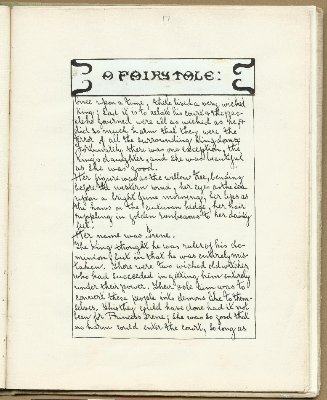 17
A FAIRY TALE:
Once upon a time, there lived a very wicked
King; sad it is to relate his court & the peo-
ple he governed were all as wicked as he &
did so much harm that they were the
pest of all the surrounding kingdoms.
Fortunately there was one exception, the
King's daughter, and she was beautiful
as she was good.
Her figure was as the willow tree, bending
before the western wind, her eyes as the sea
upon a bright June morning, her lips as
the haws on the autumn hedge, her hair
rippling in golden sunbeams to her dainty
feet.
Her name was Irene.
The King thought he was ruler of his do-
minions, but in that he was entirely mis-
taken. There were two wicked old witches
who had succeeded in getting him entirely
under their power. Their sole aim was to
convert these people into demons like to them-
selves. This they could have done had it not
been for Princess Irene; she was so good that
no harm could enter the court, so long as